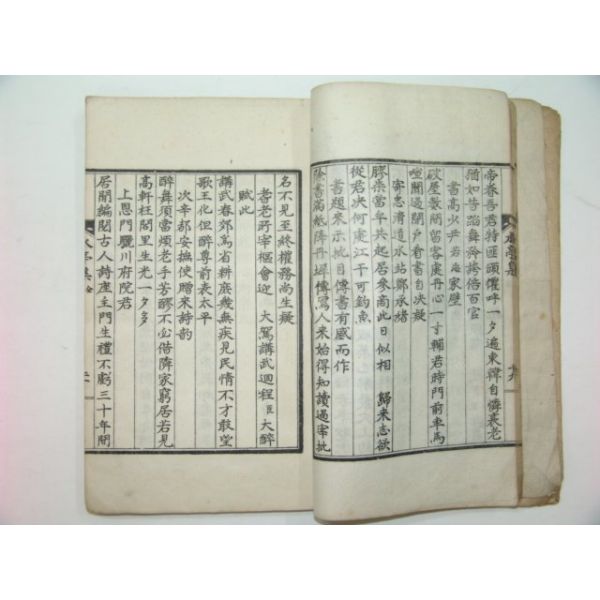 帝眷吾君特匪頭僊呼一夕遍東韓自憐衰老
猶如昔蹈舞矜誇倍百官
書高少尹若 家壁
破屋数間留客處丹心一寸輔君時門前車馬
喧闐過閉戶看書自決疑
寄忠清道水站鄭丞緒
膠柒當年共起居來商此日似相 歸來志欲
從君決何處江干可釣魚
書題來示批目傳書有感而作
除書滿紙降丹墀傳寫人來始得知讀過宰批
名不見至終權務尚生疑
耆老所宰樞會迎 大駕講武迴程臣大醉
賦此
講武春郊爲省耕庶幾無疾見民情不才敢望
歌王化但醉尊前表太平
次辛郝安撫使贈來詩韵
醉舞須當煩老手芳醪不必借隣家窮居若見
高軒枉閭里生光一夕多
上恩門驪川府院君
居閑編閲古人詩座主門生禮不虧三十年間